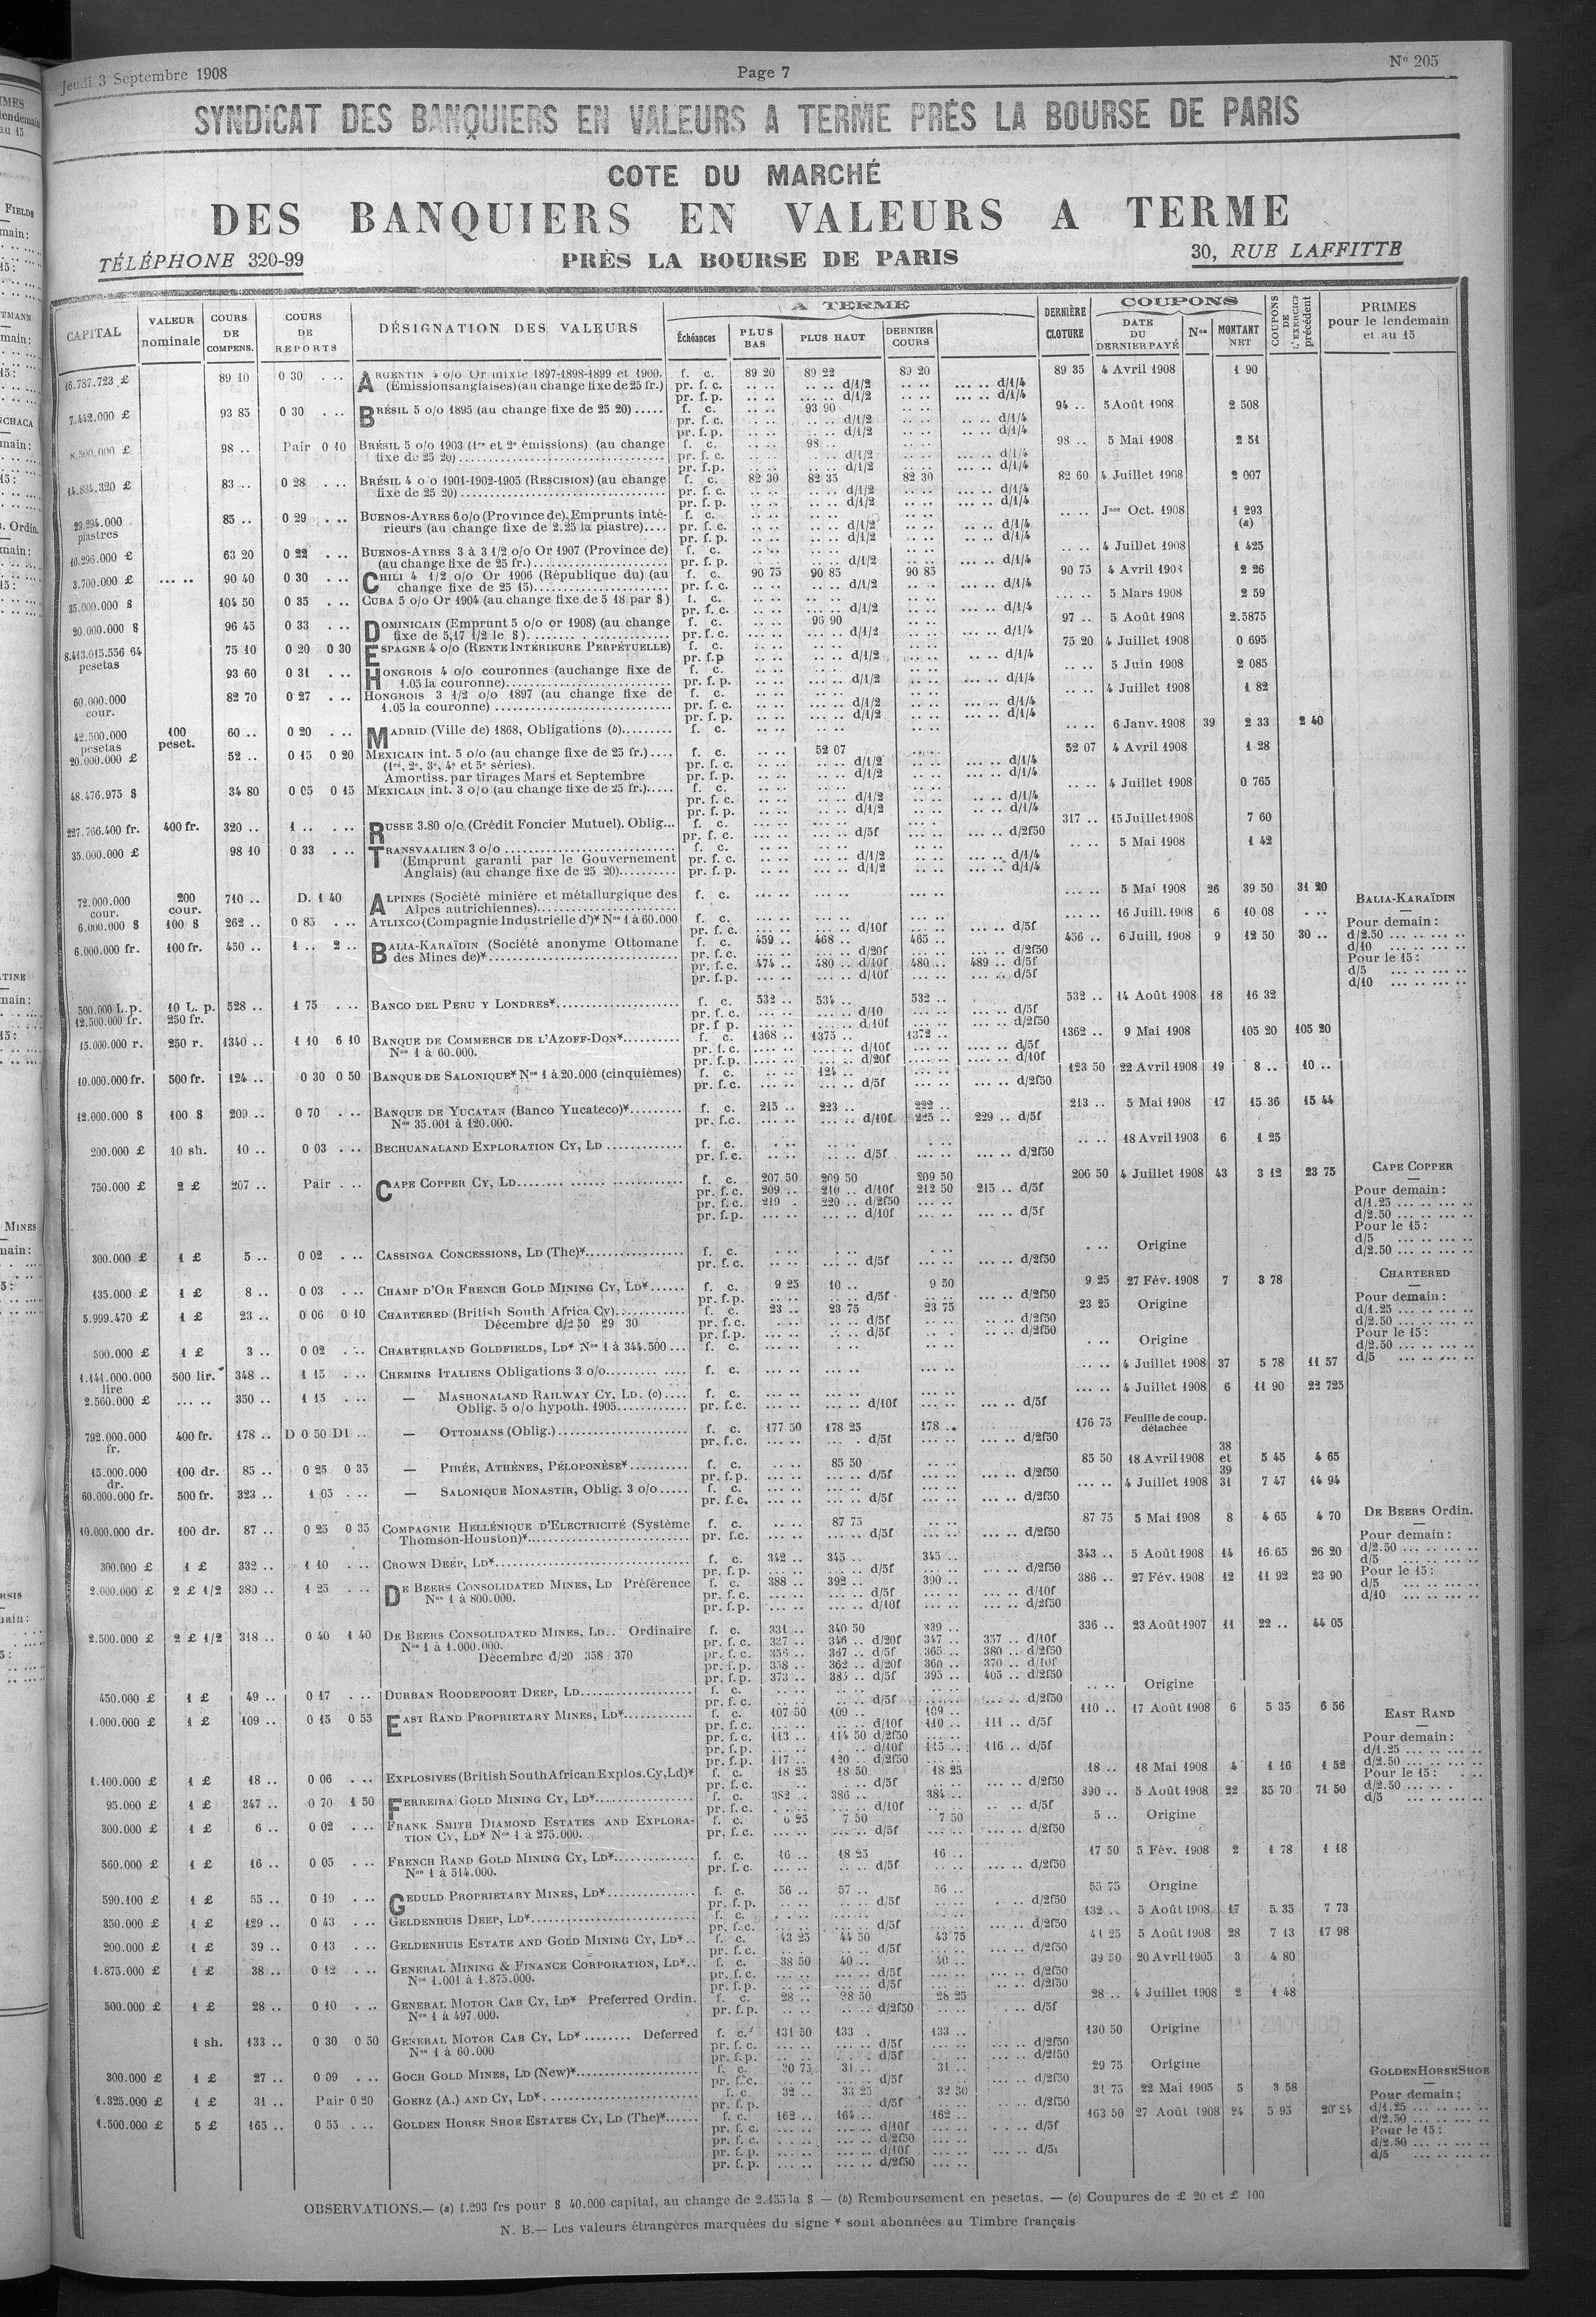 Jeudi 3 Septembre 1908 Page 7 N° 205
SYNDICAT DES BANQUIERS EN VALEURS A TERME PRÈS LA BOURSE DE PARIS
COTE DU MARCHÉ
DES BANQUIERS EN VALEURS A TERME
TÉLÉPHONE 320-99 PRÈS LA BOURSE DE PARIS 30, RUE LAFFITTE
CAPITAL VALEUR nominale COURS DE COMPENS. COURS DE REPORTS DÉSIGNATION DES VALEURS A TERME Échéances PLUS BAS PLUS HAUT DERNIER COURS DERNIÈRE CLOTURE COUPONS DATE DU DERNIER PAYÉ Nos MONTANT NET COUPONS DE L'EXERCICE précédent PRIMES pour le lendemain et au 15
16.787.723 £ 89 10 0 30 . .. ARGENTIN 4 o/o Or mixte 1897-1898-1899 et 1900. f. c. 89 20 89 22 89 20 89 35 4 Avril 1908 1 90
(Émissions anglaises) (au change fixe de 25 fr.) pr. f. c. d/1/2 d/1/4
pr. f. p. d/1/2 d/1/4
7.442.000 £ 93 85 0 30 . .. BRÉSIL 5 o/o 1895 (au change fixe de 25 20) f. c. 93 90 94 .. 5 Août 1908 2 508
pr. f. c. d/1/2 d/1/4
pr. f. p. d/1/2 d/1/4
8.500.000 £ 98 .. Pair 0 10 BRÉSIL 5 o/o 1903 (1re et 2e émissions) (au change f. c. 98 .. 98 .. 5 Mai 1908 2 51
fixe de 25 20) pr. f. c. d/1/2 d/1/4
pr. f. p. d/1/2 d/1/4
14.834.320 £ 83 .. 0 28 . .. BRÉSIL 4 o/o 1901-1902-1905 (RESCISION) (au change f. c. 82 30 82 35 82 30 82 60 4 Juillet 1908 2 007
fixe de 25 20) pr. f. c. d/1/2 d/1/4
pr. f. p. d/1/2 d/1/4
29.294.000 piastres 85 .. 0 29 . .. BUENOS-AYRES 6 o/o (Province de). Emprunts inté- f. c. Jnce Oct. 1908 1 293 (a)
rieurs (au change fixe de 2.25 la piastre) pr. f. c. d/1/2 d/1/4
pr. f. p. d/1/2 d/1/4
10.296.000 £ 63 20 0 22 . .. BUENOS-AYRES 3 à 3 1/2 o/o Or 1907 (Province de) f. c. 4 Juillet 1908 1 425
(au change fixe de 25 fr.) pr. f. p. d/1/2 d/1/4
3.700.000 £ 90 40 0 30 . .. CHILI 4 1/2 o/o Or 1906 (République du) (au f. c. 90 75 90 85 90 85 90 75 4 Avril 1908 2 26
change fixe de 25 15) pr. f. c. d/1/2 d/1/4
35.000.000 $ 104 50 0 35 . .. CUBA 5 o/o Or 1904 (au change fixe de 5 18 par $) f. c. 5 Mars 1908 2 59
pr. f. c. d/1/2 d/1/4
20.000.000 $ 96 45 0 33 . .. DOMINICAIN (Emprunt 5 o/o or 1908) (au change f. c. 96 90 97 .. 5 Août 1908 2.5875
fixe de 5,17 1/2 le $) pr. f. c. d/1/2 d/1/4
8.413.015.556 64 pesetas 75 10 0 20 0 30 ESPAGNE 4 o/o (RENTE INTÉRIEURE PERPÉTUELLE) f. c. 75 20 4 Juillet 1908 0 695
pr. f. p. d/1/2 d/1/4
93 60 0 31 . .. HONGROIS 4 o/o couronnes (au change fixe de f. c. 5 Juin 1908 2 085
1.05 la couronne) pr. f. p. d/1/2 d/1/4
60.000.000 cour. 82 70 0 27 . .. HONGROIS 3 1/2 o/o 1897 (au change fixe de f. c. 4 Juillet 1908 1 82
1.05 la couronne) pr. f. c. d/1/2 d/1/4
pr. f. p. d/1/2 d/1/4
42.500.000 pesetas 100 peset. 60 .. 0 20 . .. MADRID (Ville de) 1868, Obligations (b) f. c. 6 Janv. 1908 39 2 33 2 40
20.000.000 £ 52 .. 0 15 0 20 MEXICAIN int. 5 o/o (au change fixe de 25 fr.) f. c. 52 07 52 07 4 Avril 1908 1 28
(1re, 2e, 3e, 4e et 5e séries). pr. f. c. d/1/2 d/1/4
Amortiss. par tirages Mars et Septembre pr. f. p. d/1/2 d/1/4
48.476.975 $ 34 80 0 05 0 15 MEXICAIN int. 3 o/o (au change fixe de 25 fr.) f. c. 4 Juillet 1908 0 765
pr. f. c. d/1/2 d/1/4
pr. f. p. d/1/2 d/1/4
227.766.400 fr. 400 fr. 320 .. 1 .. . .. RUSSE 3.80 o/o (Crédit Foncier Mutuel). Oblig... f. c. 317 .. 15 Juillet 1908 7 60
pr. f. c. d/5f d/2f50
35.000.000 £ 98 10 0 33 . .. TRANSVAALIEN 3 o/o f. c. 5 Mai 1908 1 42
(Emprunt garanti par le Gouvernement pr. f. c. d/1/2 d/1/4
Anglais) (au change fixe de 25 20) pr. f. p. d/1/2 d/1/4
72.000.000 cour. 200 cour. 710 .. D. 1 40 ALPINES (Société minière et métallurgique des f. c. 5 Mai 1908 26 39 50 31 20
Alpes autrichiennes)
6.000.000 $ 100 $ 262 .. 0 85 . .. ATLIXCO (Compagnie Industrielle d')* Nos 1 à 60.000 f. c. 16 Juill. 1908 6 10 08
pr. f. c. d/10f d/5f
6.000.000 fr. 100 fr. 450 .. 1 .. 2 .. BALIA-KARAÏDIN (Société anonyme Ottomane f. c. 459 .. 468 .. 465 .. 456 .. 6 Juill. 1908 9 12 50 30 ..
des Mines de)* pr. f. c. d/20f d/2f50
pr. f. c. 474 .. 480 .. d/10f 480 .. 489 .. d/5f
pr. f. p. d/10f d/5f
BALIA-KARAÏDIN
Pour demain:
d/2.50
d/10
Pour le 15:
d/5
d/10
500.000 L.p. 10 L. p. 528 .. 1 75 . .. BANCO DEL PERU Y LONDRES* f. c. 532 .. 534 .. 532 .. 532 .. 14 Août 1908 18 16 32
12.500.000 fr. 250 fr. pr. f. c. d/10 d/5f
pr. f. p. d/10f d/2f50
15.000.000 r. 250 r. 1340 .. 1 10 6 10 BANQUE DE COMMERCE DE L'AZOFF-DON* f. c. 1368 .. 1375 .. 1372 .. 1362 .. 9 Mai 1908 105 20 105 20
Nos 1 à 60.000. pr. f. c. d/10f d/5f
pr. f. p. d/20f d/10f
10.000.000 fr. 500 fr. 124 .. 0 30 0 50 BANQUE DE SALONIQUE* Nos 1 à 20.000 (cinquièmes) f. c. 124 .. 123 50 22 Avril 1908 19 8 .. 10 ..
pr. f. c. d/5f d/2f50
12.000.000 $ 100 $ 209 .. 0 70 . .. BANQUE DE YUCATAN (Banco Yucateco)* f. c. 215 .. 223 .. 222 .. 213 .. 5 Mai 1908 17 15 36 15 44
Nos 35.001 à 120.000. pr. f. c. d/10f 225 .. 229 .. d/5f
200.000 £ 10 sh. 10 .. 0 03 . .. BECHUANALAND EXPLORATION CY, LD f. c. 18 Avril 1903 6 1 25
pr. f. c. d/5f d/2f50
750.000 £ 2 £ 207 .. Pair . .. CAPE COPPER CY, LD f. c. 207 50 209 50 209 50 206 50 4 Juillet 1908 43 3 12 23 75
pr. f. c. 209 .. 210 .. d/10f 212 50 215 .. d/5f
pr. f. c. 219 . 220 .. d/2f50
pr. f. p. d/10f d/5f
CAPE COPPER
Pour demain:
d/1.25
d/2.50
Pour le 15:
d/5
d/2.50
300.000 £ 1 £ 5 .. 0 02 . .. CASSINGA CONCESSIONS, LD (The)* f. c. Origine
pr. f. c. d/5f d/2f50
135.000 £ 1 £ 8 .. 0 03 . .. CHAMP D'OR FRENCH GOLD MINING CY, LD* f. c. 9 25 10 .. 9 50 9 25 27 Fév. 1908 7 3 78
pr. f. p. d/5f d/2f50
5.999.470 £ 1 £ 23 .. 0 06 0 10 CHARTERED (British South Africa Cy) f. c. 23 .. 23 75 23 75 23 25 Origine
Décembre d/2 50 29 30 pr. f. c. d/5f d/2f50
pr. f. p. d/5f d/2f50
CHARTERED
Pour demain:
d/1.25
d/2.50
Pour le 15:
d/2.50
d/5
500.000 £ 1 £ 3 .. 0 02 . .. CHARTERLAND GOLDFIELDS, LD* Nos 1 à 344.500 f. c. Origine
1.141.000.000 lire 500 lir. 348 .. 1 15 . .. CHEMINS ITALIENS Obligations 3 o/o f. c. 4 Juillet 1908 37 5 78 11 57
2.560.000 £ 350 .. 1 15 . .. — MASHONALAND RAILWAY CY, LD. (c) f. c. 4 Juillet 1908 6 11 90 22 725
Oblig. 5 o/o hypoth. 1905 pr. f. c. d/10f d/5f
792.000.000 fr. 400 fr. 178 .. D 0 50 D1 .. — OTTOMANS (Oblig.) f. c. 177 50 178 25 178 .. 176 75 Feuille de coup. détachée
pr. f. c. d/5f d/2f50
15.000.000 dr. 100 dr. 85 .. 0 25 0 35 — PIRÉE, ATHÈNES, PÉLOPONÈSE* f. c. 85 50 85 50 18 Avril 1908 38 et 39 5 45 4 65
pr. f. p. d/5f d/2f50
60.000.000 fr. 500 fr. 323 .. 1 05 . .. — SALONIQUE MONASTIR, Oblig. 3 o/o f. c. 4 Juillet 1908 31 7 47 14 94
pr. f. c. d/5f d/2f50
10.000.000 dr. 100 dr. 87 .. 0 25 0 35 COMPAGNIE HELLÉNIQUE D'ELECTRICITÉ (Système f. c. 87 75 87 75 5 Mai 1908 8 4 65 4 70
Thomson-Houston)* pr. f. c. d/5f d/2f50
300.000 £ 1 £ 332 .. 1 10 . .. CROWN DEEP, LD* f. c. 342 .. 345 .. 345 .. 343 .. 5 Août 1908 14 16.65 26 20
pr. f. p. d/5f d/2f50
2.000.000 £ 2 £ 1/2 380 .. 1 25 . .. DE BEERS CONSOLIDATED MINES, LD Préférence f. c. 388 .. 392 .. 390 .. 386 .. 27 Fév. 1908 12 11 92 23 90
Nos 1 à 800.000. pr. f. c. d/5f d/10f
pr. f. p. d/10f d/2f50
DE BEERS Ordin.
Pour demain:
d/2.50
d/5
Pour le 15:
d/5
d/10
2.500.000 £ 2 £ 1/2 318 .. 0 40 1 40 DE BEERS CONSOLIDATED MINES, LD.. Ordinaire f. c. 331 .. 340 50 339 .. 336 .. 23 Août 1907 11 22 .. 44 05
Nos 1 à 1.000.000. pr. f. c. 327 .. 346 .. d/20f 347 .. 357 .. d/10f
Décembre d/20 358 370 pr. f. c. 356 .. 367 .. d/5f 365 .. 380 .. d/2f50
pr. f. p. 358 .. 362 .. d/20f 360 .. 370 .. d/10f
pr. f. p. 373 .. 385 .. d/5f 395 .. 405 .. d/2f50
450.000 £ 1 £ 49 .. 0 17 . .. DURBAN ROODEPOORT DEEP, LD f. c. Origine
pr. f. c. d/5f d/2f50
1.000.000 £ 1 £ 109 .. 0 15 0 55 EAST RAND PROPRIETARY MINES, LD* f. c. 107 50 109 .. 109 .. 110 .. 17 Août 1908 6 5 35 6 56
pr. f. c. d/10f 110 .. 111 .. d/5f
pr. f. c. 113 .. 114 50 d/2f50
pr. f. p. d/10f 115 .. 116 .. d/5f
pr. f. p. 117 .. 120 .. d/2f50
EAST RAND
Pour demain:
d/1.25
d/2.50
Pour le 15:
d/2.50
d/5
1.100.000 £ 1 £ 18 .. 0 06 . .. EXPLOSIVES (British South African Explos. Cy, Ld)* f. c. 18 25 18 50 18 25 18 .. 18 Mai 1908 4 1 16 1 52
pr. f. c. d/5f d/2f50
95.000 £ 1 £ 347 .. 0 70 1 50 FERREIRA GOLD MINING CY, LD* f. c. 382 .. 386 .. 384 .. 390 .. 5 Août 1908 22 35 70 71 50
pr. f. c. d/10f d/5f
300.000 £ 1 £ 6 .. 0 02 . .. FRANK SMITH DIAMOND ESTATES AND EXPLORA- f. c. 6 25 7 50 7 50 5 .. Origine
TION CY, LD* Nos 1 à 275.000. pr. f. c. d/5f d/2f50
560.000 £ 1 £ 16 .. 0 05 . .. FRENCH RAND GOLD MINING CY, LD* f. c. 16 .. 18 25 16 .. 17 50 5 Fév. 1908 2 1 78 1 18
Nos 1 à 514.000. pr. f. c. d/5f d/2f50
590.100 £ 1 £ 55 .. 0 19 . .. GEDULD PROPRIETARY MINES, LD* f. c. 56 .. 57 .. 56 .. 55 75 Origine
pr. f. p. d/5f d/2f50
350.000 £ 1 £ 129 .. 0 43 . .. GELDENHUIS DEEP, LD* f. c. 132 .. 5 Août 1908 17 5.35 7 73
pr. f. c. d/5f d/2f50
200.000 £ 1 £ 39 .. 0 13 . .. GELDENHUIS ESTATE AND GOLD MINING CY, LD* f. c. 43 25 44 50 43 75 41 25 5 Août 1908 28 7 13 17 98
pr. f. c. d/5f d/2f50
1.875.000 £ 1 £ 38 .. 0 12 . .. GENERAL MINING & FINANCE CORPORATION, LD* f. c. 38 50 40 .. 40 .. 39 50 20 Avril 1905 3 4 80
Nos 1.001 à 1.875.000. pr. f. c. d/5f d/2f50
pr. f. p. d/5f d/2f50
500.000 £ 1 £ 28 .. 0 10 . .. GENERAL MOTOR CAB CY, LD* Preferred Ordin. f. c. 28 .. 28 50 28 25 28 .. 4 Juillet 1908 2 1 48
Nos 1 à 497.000. pr. f. p. d/2f50 d/5f
1 sh. 133 .. 0 30 0 50 GENERAL MOTOR CAB CY, LD* Deferred f. c. 131 50 133 . 133 .. 130 50 Origine
Nos 1 à 60.000 pr. f. c. d/5f d/2f50
pr. f. p. d/5f d/2f50
300.000 £ 1 £ 27 .. 0 09 . .. GOCH GOLD MINES, LD (New)* f. c. 30 75 31 .. 31 .. 29 75 Origine
pr. f. c. d/5f d/2f50
1.325.000 £ 1 £ 31 .. Pair 0 20 GOERZ (A.) AND CY, LD* f. c. 32 .. 33 25 32 50 31 75 22 Mai 1905 5 3 58
pr. f. p. d/5f d/2f50
1.500.000 £ 5 £ 165 .. 0 55 . .. GOLDEN HORSE SHOE ESTATES CY, LD (The)* f. c. 162 .. 164 .. 162 .. 163 50 27 Août 1908 24 5 95 20 24
pr. f. c. d/10f d/5f
pr. f. c. d/2f50
pr. f. p. d/10f d/5f
pr. f. p. d/2f50
GOLDEN HORSE SHOE
Pour demain;
d/1.25
d/2.50
Pour le 15:
d/2.50
d/5
OBSERVATIONS.— (a) 1.293 frs pour $ 40.000 capital, au change de 2.155 la $ — (b) Remboursement en pesetas. — (c) Coupures de £ 20 et £ 100
N. B.— Les valeurs étrangères marquées du signe * sont abonnées au Timbre français